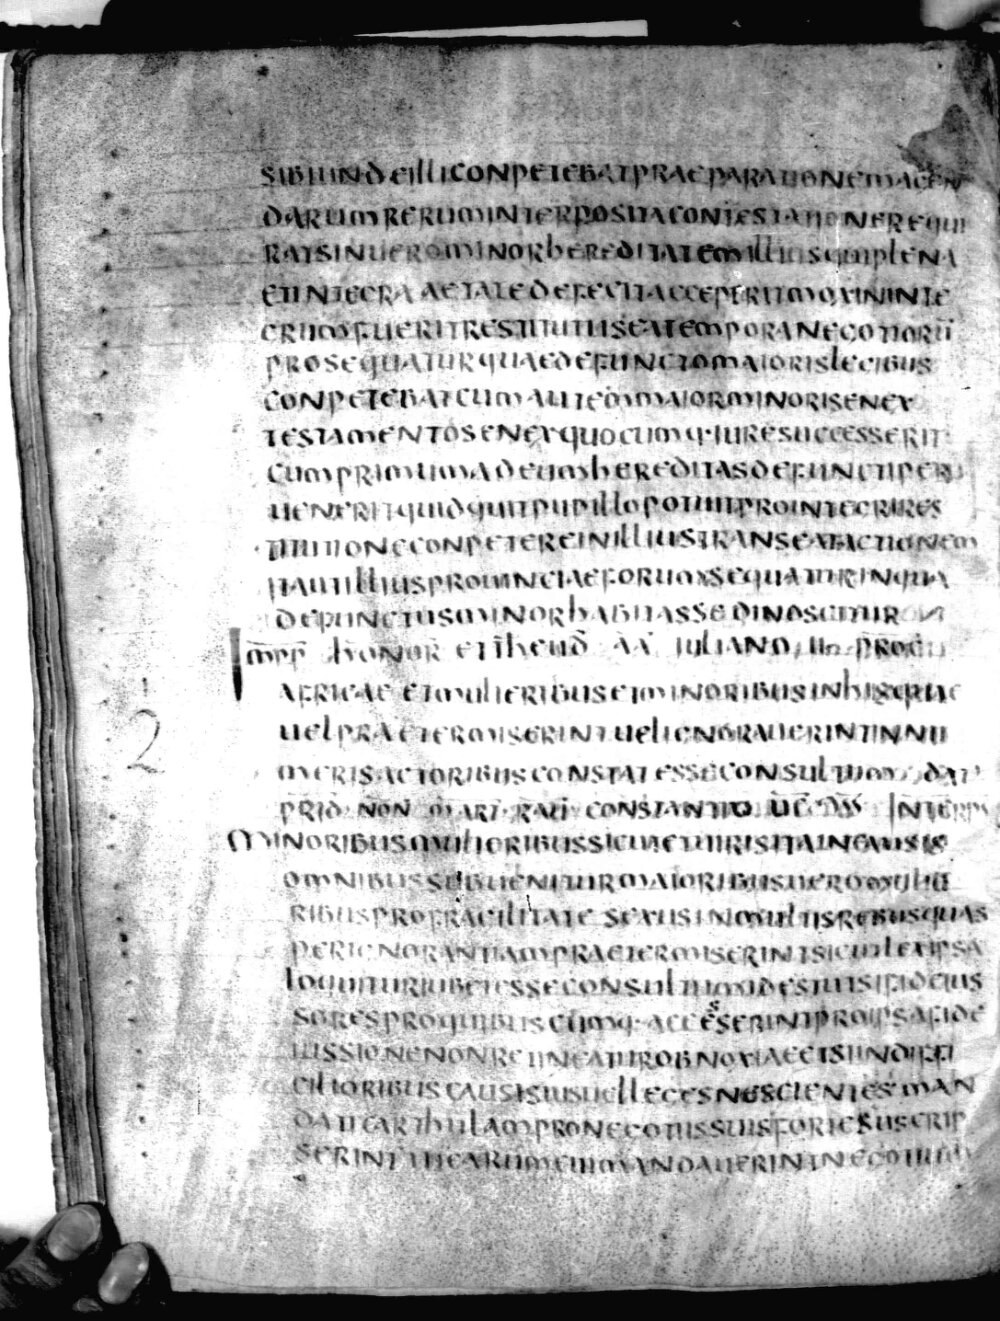 SIBI INDE ILLI CONPETEBAT PRAEPARATIONEM AGEN
DARUM RERUM INTERPOSITA CONTESTATIONE REQUI
RAT SIN UERO MINOR HEREDITATEM ILLIUS QUI PLENA
ET INTEGRA AETATE DEFECIT ACCEPERIT MOX IN INTE
GRUM FUERIT RESTITUTUS EA TEMPORA NEGOTIORU
PROSEQUATUR QUAE DEFUNCTO MAIORIS LEGIBUS
CONPETEBAT CUM AUTEM MAIOR MINORI SE NEX
TESTAMENTO SENEX QUOCUMQ· IURE SUCCESSERIT
CUM PRIMUM AD EUM HEREDITAS DEFUNCTI PER
UENERIT QUIDQUIT PUPILLO POTUIT PRO INTEGRI RES
TITUTIONE CONPETERE IN ILLIUS TRANSEAT ACTIONEM
ITA UT ILLIUS PROUINCIAE FORUM SEQUATUR IN QUA
DEFUNCTUS MINOR HABITASSE DINOSCITUR
IMPP HONOR ET THEUD AA IULIANO PROC
AFRICAE ET MULIERIBUS ET MINORIBUS IN HIS QUAE
UEL PRAETERMISERINT UEL IGNORAUERINT INNU
MERIS AUCTORIBUS CONSTAT ESSE CONSULTUM DAT
PRID· NON MART· RAU CONSTANTIO UC CSS INTERP
MINORIBUS MULIORIBUS SICUT ET IURIS ITA IN CAUSIS
OMNIBUS SUBUENITUR MAIORIBUS UERO MULIE
RIBUS PRO FRAGILITATE SEXUS IN MULTIS REBUS QUAS
PER IGNORANTIAM PRAETERMISERINT SICUT LEX IPSA
LOQUITUR IUBET ESSE CONSULTUM DESTITUTIS FIDEIUS
SORES PRO QUIBUSCUMQ· ACCESSERINT PRO IPSA FIDE
IUSSIONE NON RETINEATUR OB NOXIAE ET SI IN DIREI
CILIORIBUS CAUSIS IUS UEL LEGES NESCIENTES MAN
DATI CARTHULAM PRO NEGOTIIS SUIS FORTE SUSCRIP
SERINT
2